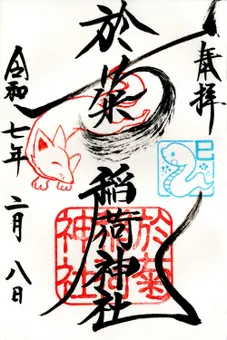 奉拝
於菊稲荷神社
巳
於菊
稲荷
神社
令和七年二月八日